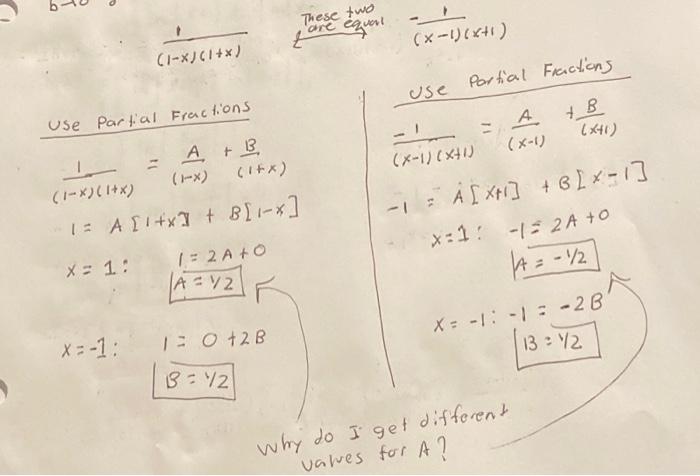 b→0
1/((1-x)(1+x)) These two are equal -1/((x-1)(x+1))
Use Partial Fractions
1/((1-x)(1+x)) = A/(1-x) + B/(1+x)
1 = A[1+x] + B[1-x]
x = 1: 1 = 2A+0
A = 1/2
x = -1: 1 = 0 + 2B
B = 1/2
Use Partial Fractions
-1/((x-1)(x+1)) = A/(x-1) + B/(x+1)
-1 = A[x+1] + B[x-1]
x=1: -1 = 2A+0
A = -1/2
x = -1: -1 = -2B
B = 1/2
Why do I get different
values for A?